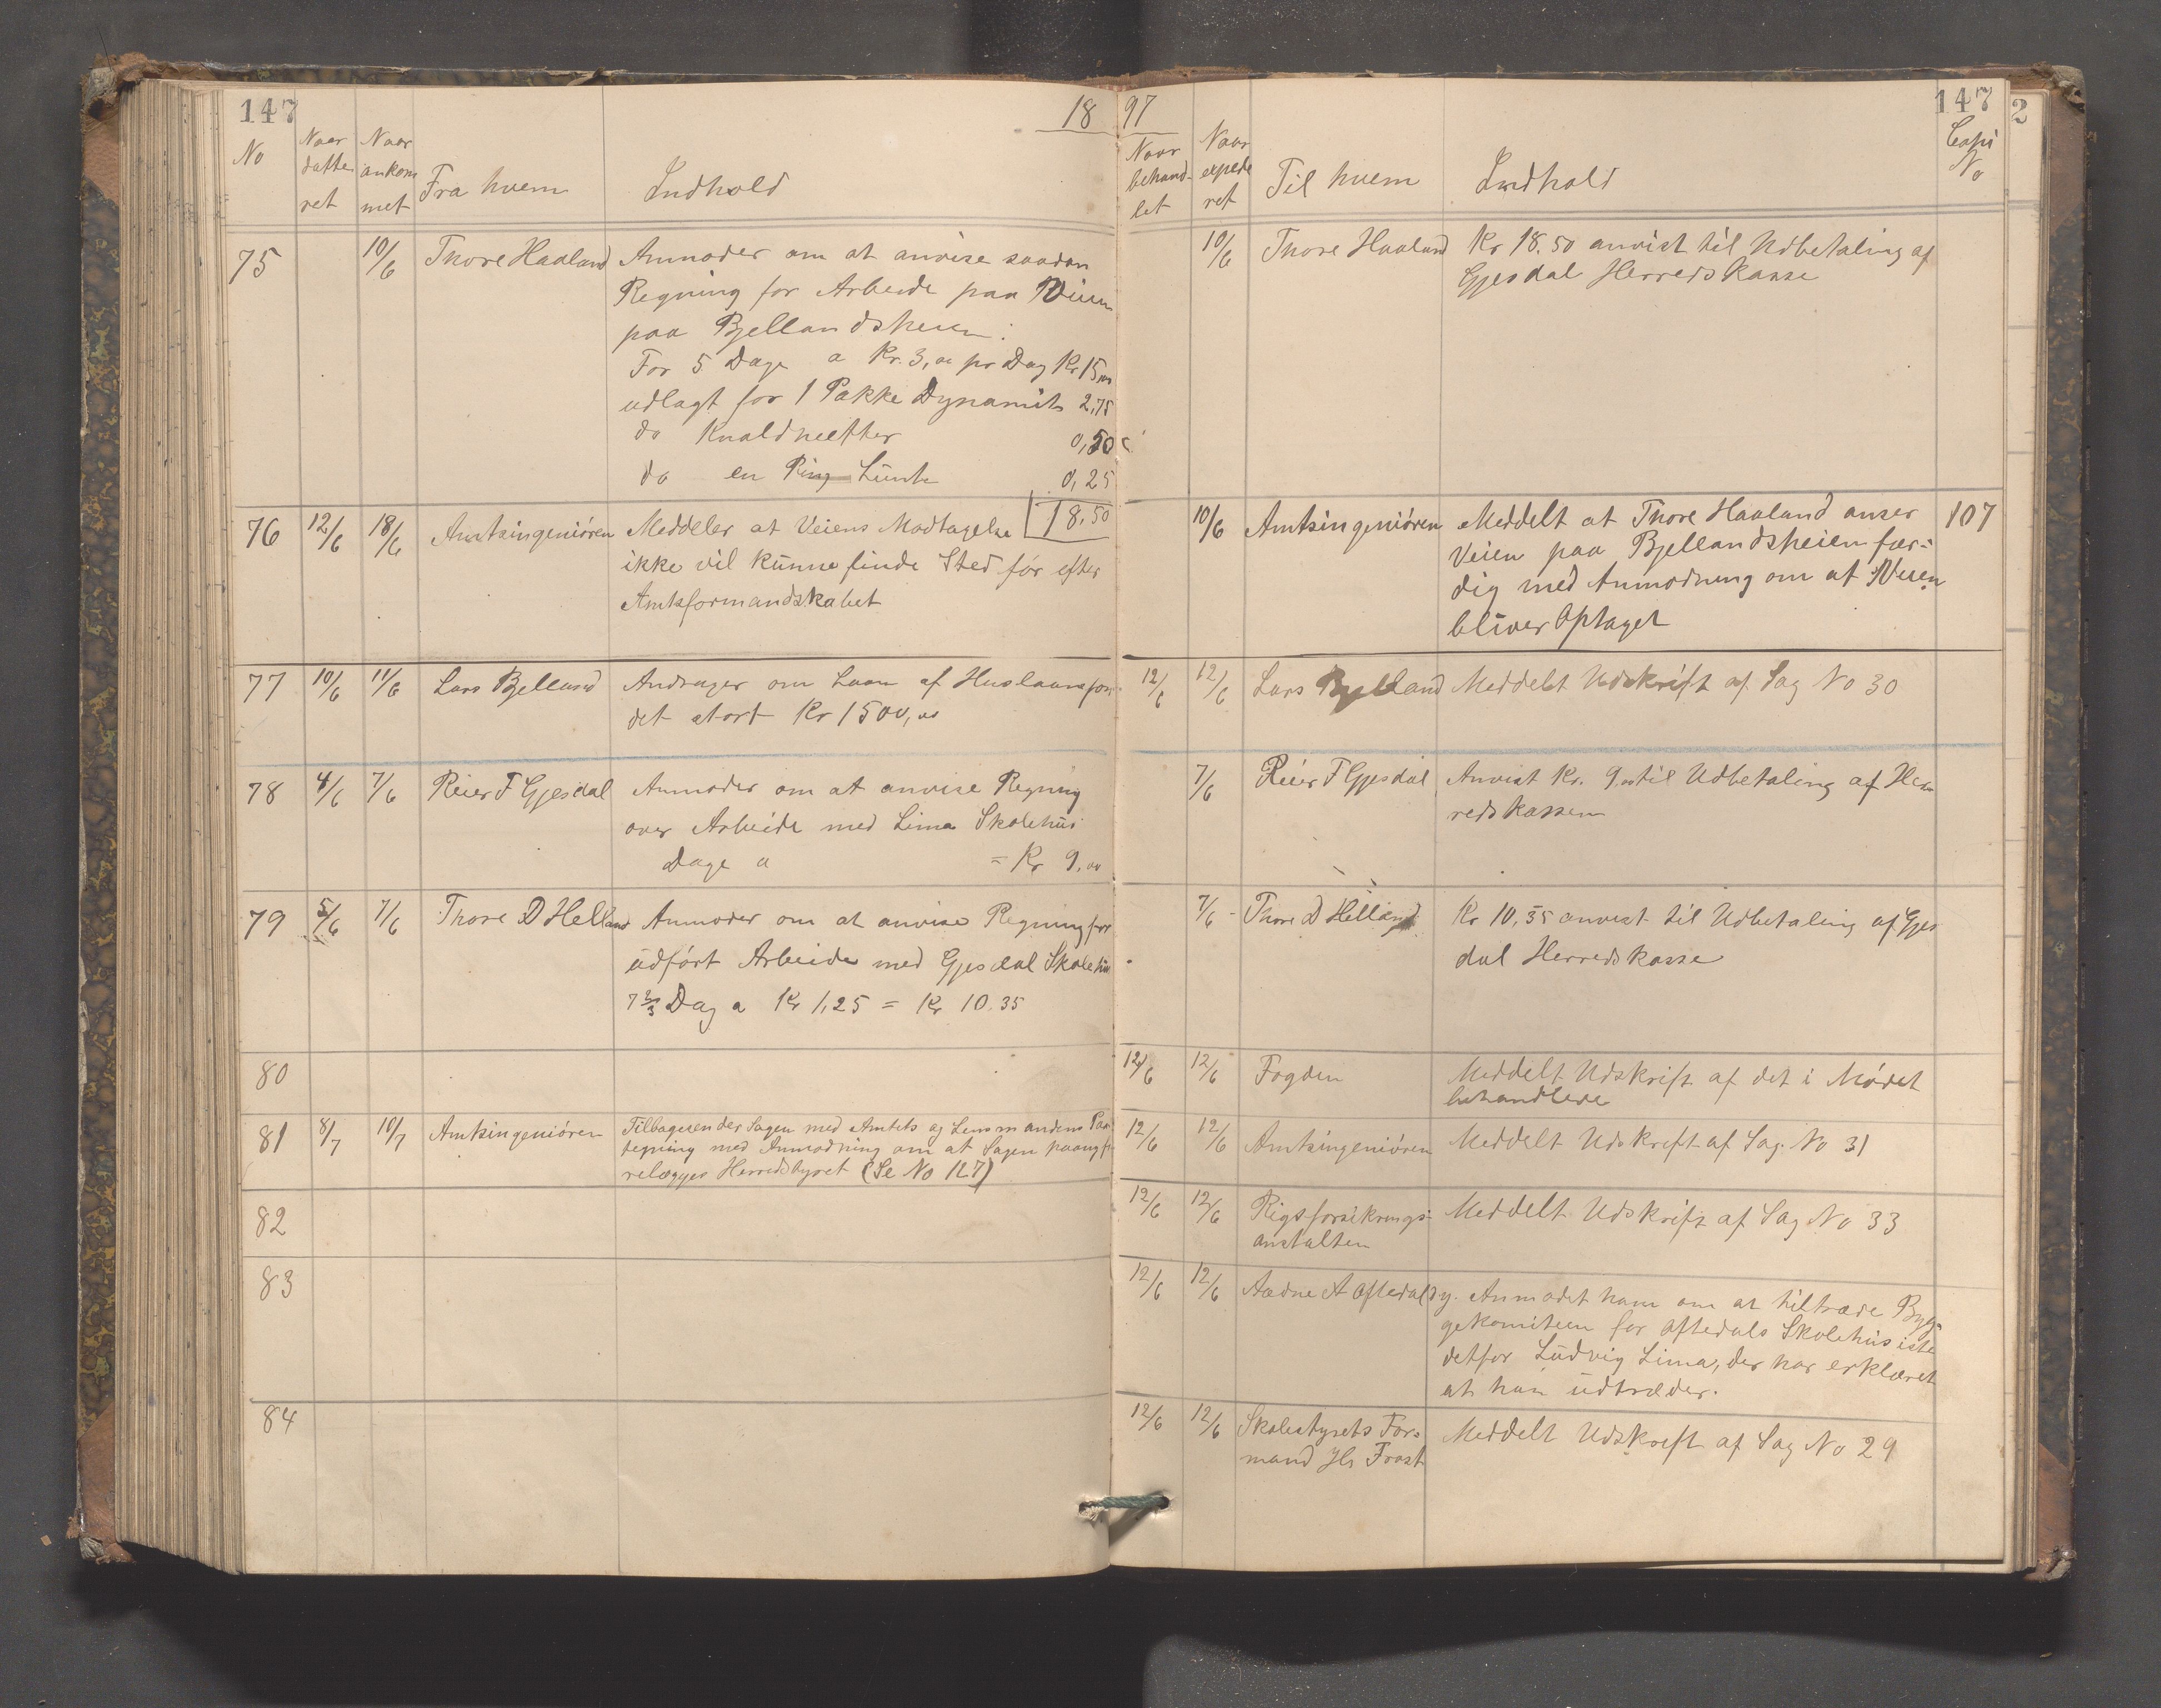 147
18 97
147
2
No
Naar datte ret
Naar ankom met
Fra hvem
Indhold
Naar behand- let
Naar expede ret
Til hvem
Indhold
Copi No
75 10/6 Thore Haaland Anmoder om at anvise saadan
Regning for Arbeide paa Veien
paa Bjellandsheien:
For 5 Dage a Kr. 3,00 pr Dag Kr 15,00
udlagt for 1 Pakke Dynamit 2,75
do Knaldhætter 0,50
do en Ring Lunte 0,25
18,50
10/6 Thore Haaland Kr 18.50 anvist til Udbetaling af
Gjesdal Herredskasse
76 12/6 18/6 Amtsingeniøren Meddeler at Veiens Modtagelse
ikke vil kunne finde Sted før efter
Amtsformandskabet
10/6 Amtsingeniøren Meddelt at Thore Haaland anser 107
Veien paa Bjellandsheien fær-
dig med Anmodning om at Veien
bliver Optaget
77 10/6 11/6 Lars Bjelland Andrager om Laan af Huslaansfon
det stort Kr 1500,00
12/6 12/6 Lars Bjelland Meddelt Udskrift af Sag No 30
78 4/6 7/6 Reier F Gjesdal Anmoder om at anvise Regning
over Arbeide med Lima Skolehus
Dage a = Kr 9,00
7/6 Reier F Gjesdal Anvist Kr. 9,00 til Udbetaling af Her
redskassen
79 5/6 7/6 Thore D Helland Anmoder om at anvise Regning for
udført Arbeide med Gjesdal Skolehus
7 2/3 Dag a Kr 1,25 = Kr 10.35
7/6 - Thore D Helland Kr 10,35 anvist til Udbetaling af Gjes
dal Herredskasse
80
12/6 12/6 Fogden Meddelt Udskrift af det i Mødet
behandlede
81 8/7 10/7 Amtsingeniøren Tilbagesender Sagen med Amtets og Lensmandens Paa
tegning med Anmodning om at Sagen paany fo
relægges Herredstyret (Se No 127)
12/6 12/6 Amtsingeniøren Meddelt Udskrift af Sag No 31
82
12/6 12/6 Rigsforsikrings- Meddelt Udskrift af Sag No 33
anstalten
83
12/6 12/6 Aadne A Oftedal Anmodet ham om at tiltræde Byg-
gekomiteen for Oftedals Skolehus iste
detfor Ludvig Lima, der har erklæret
at han udtræder.
84
12/6 12/6 Skolestyrets For- Meddelt Udskrift af Sag No 29
mand Hr Frost